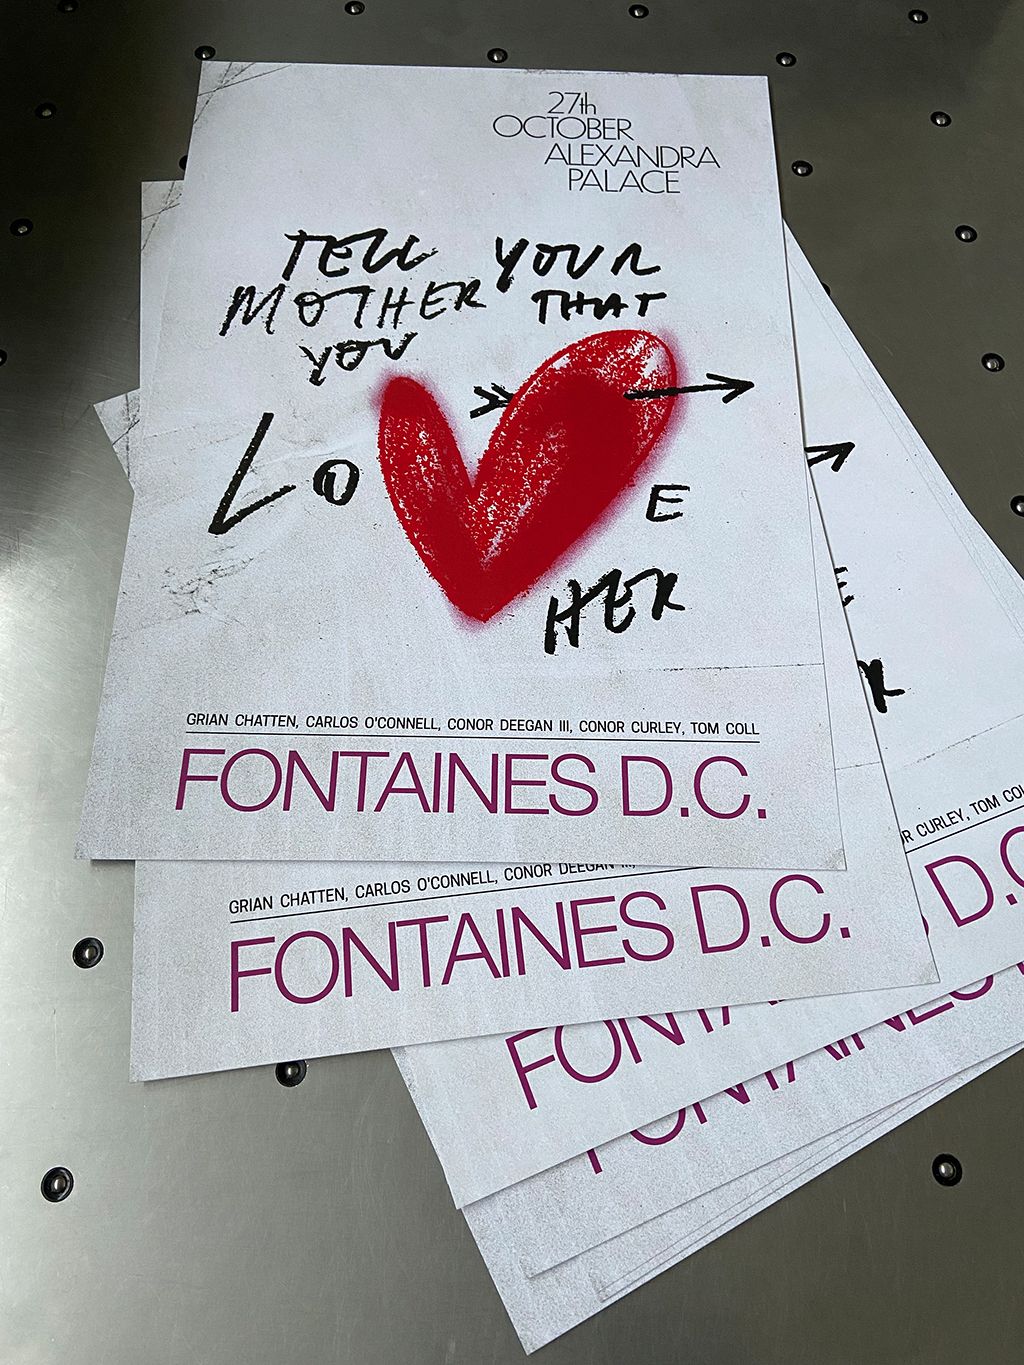 27th
OCTOBER
ALEXANDRA
PALACE
TELL YOUR
MOTHER THAT
YOU
LO E
HER
GRIAN CHATTEN, CARLOS O'CONNELL, CONOR DEEGAN III, CONOR CURLEY, TOM COLL
FONTAINES D.C.
E
R
GRIAN CHATTEN, CARLOS O'CONNELL, CONOR DEEGAN III,
FONTAINES D.C.
R CURLEY, TOM COL
D.C
FONTA
FONTAINES